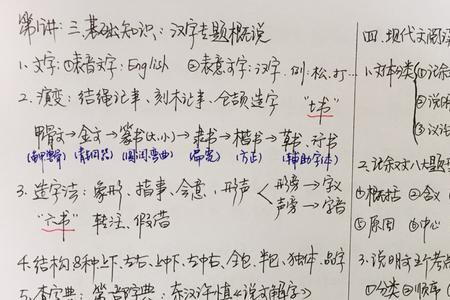 第1讲:三.基础知识:汉字专题概说
1.文字:①表音文字:English ②表意文字:汉字.例:松.打...
2.演变:结绳记事、刻木记事、仓颉造字
"七书"
甲骨文→金文→篆书(大.小)→隶书→楷书→草书.行书
(青铜器) (扁宽) (方正) (辅助字体)
3.造字法:象形、指事、会意、形声
形旁→字义
声旁→字音
"六书" 转注、假借
4.结构:8种上下、左右、上中下、左中右、全包、半包、独体、品字
5.查字典:第一部字典:东汉许慎《说文解字》
四.现代文阅读
1.文体分类
①记
②说明
③议
2.记叙文八大题型
①概括 ②含义
⑤原因 ⑥中心
3.说明文五个考点
①分类 ②顺序